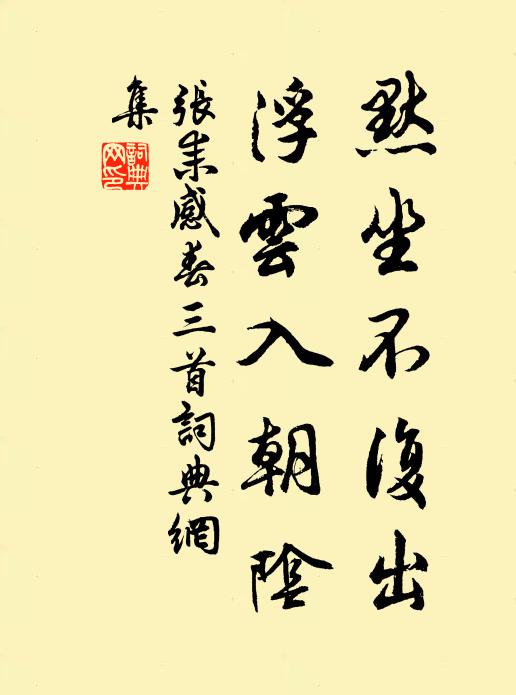 默坐不復出
浮雲入朝陰
張耒感春三首詞典網
集
詞典
網印